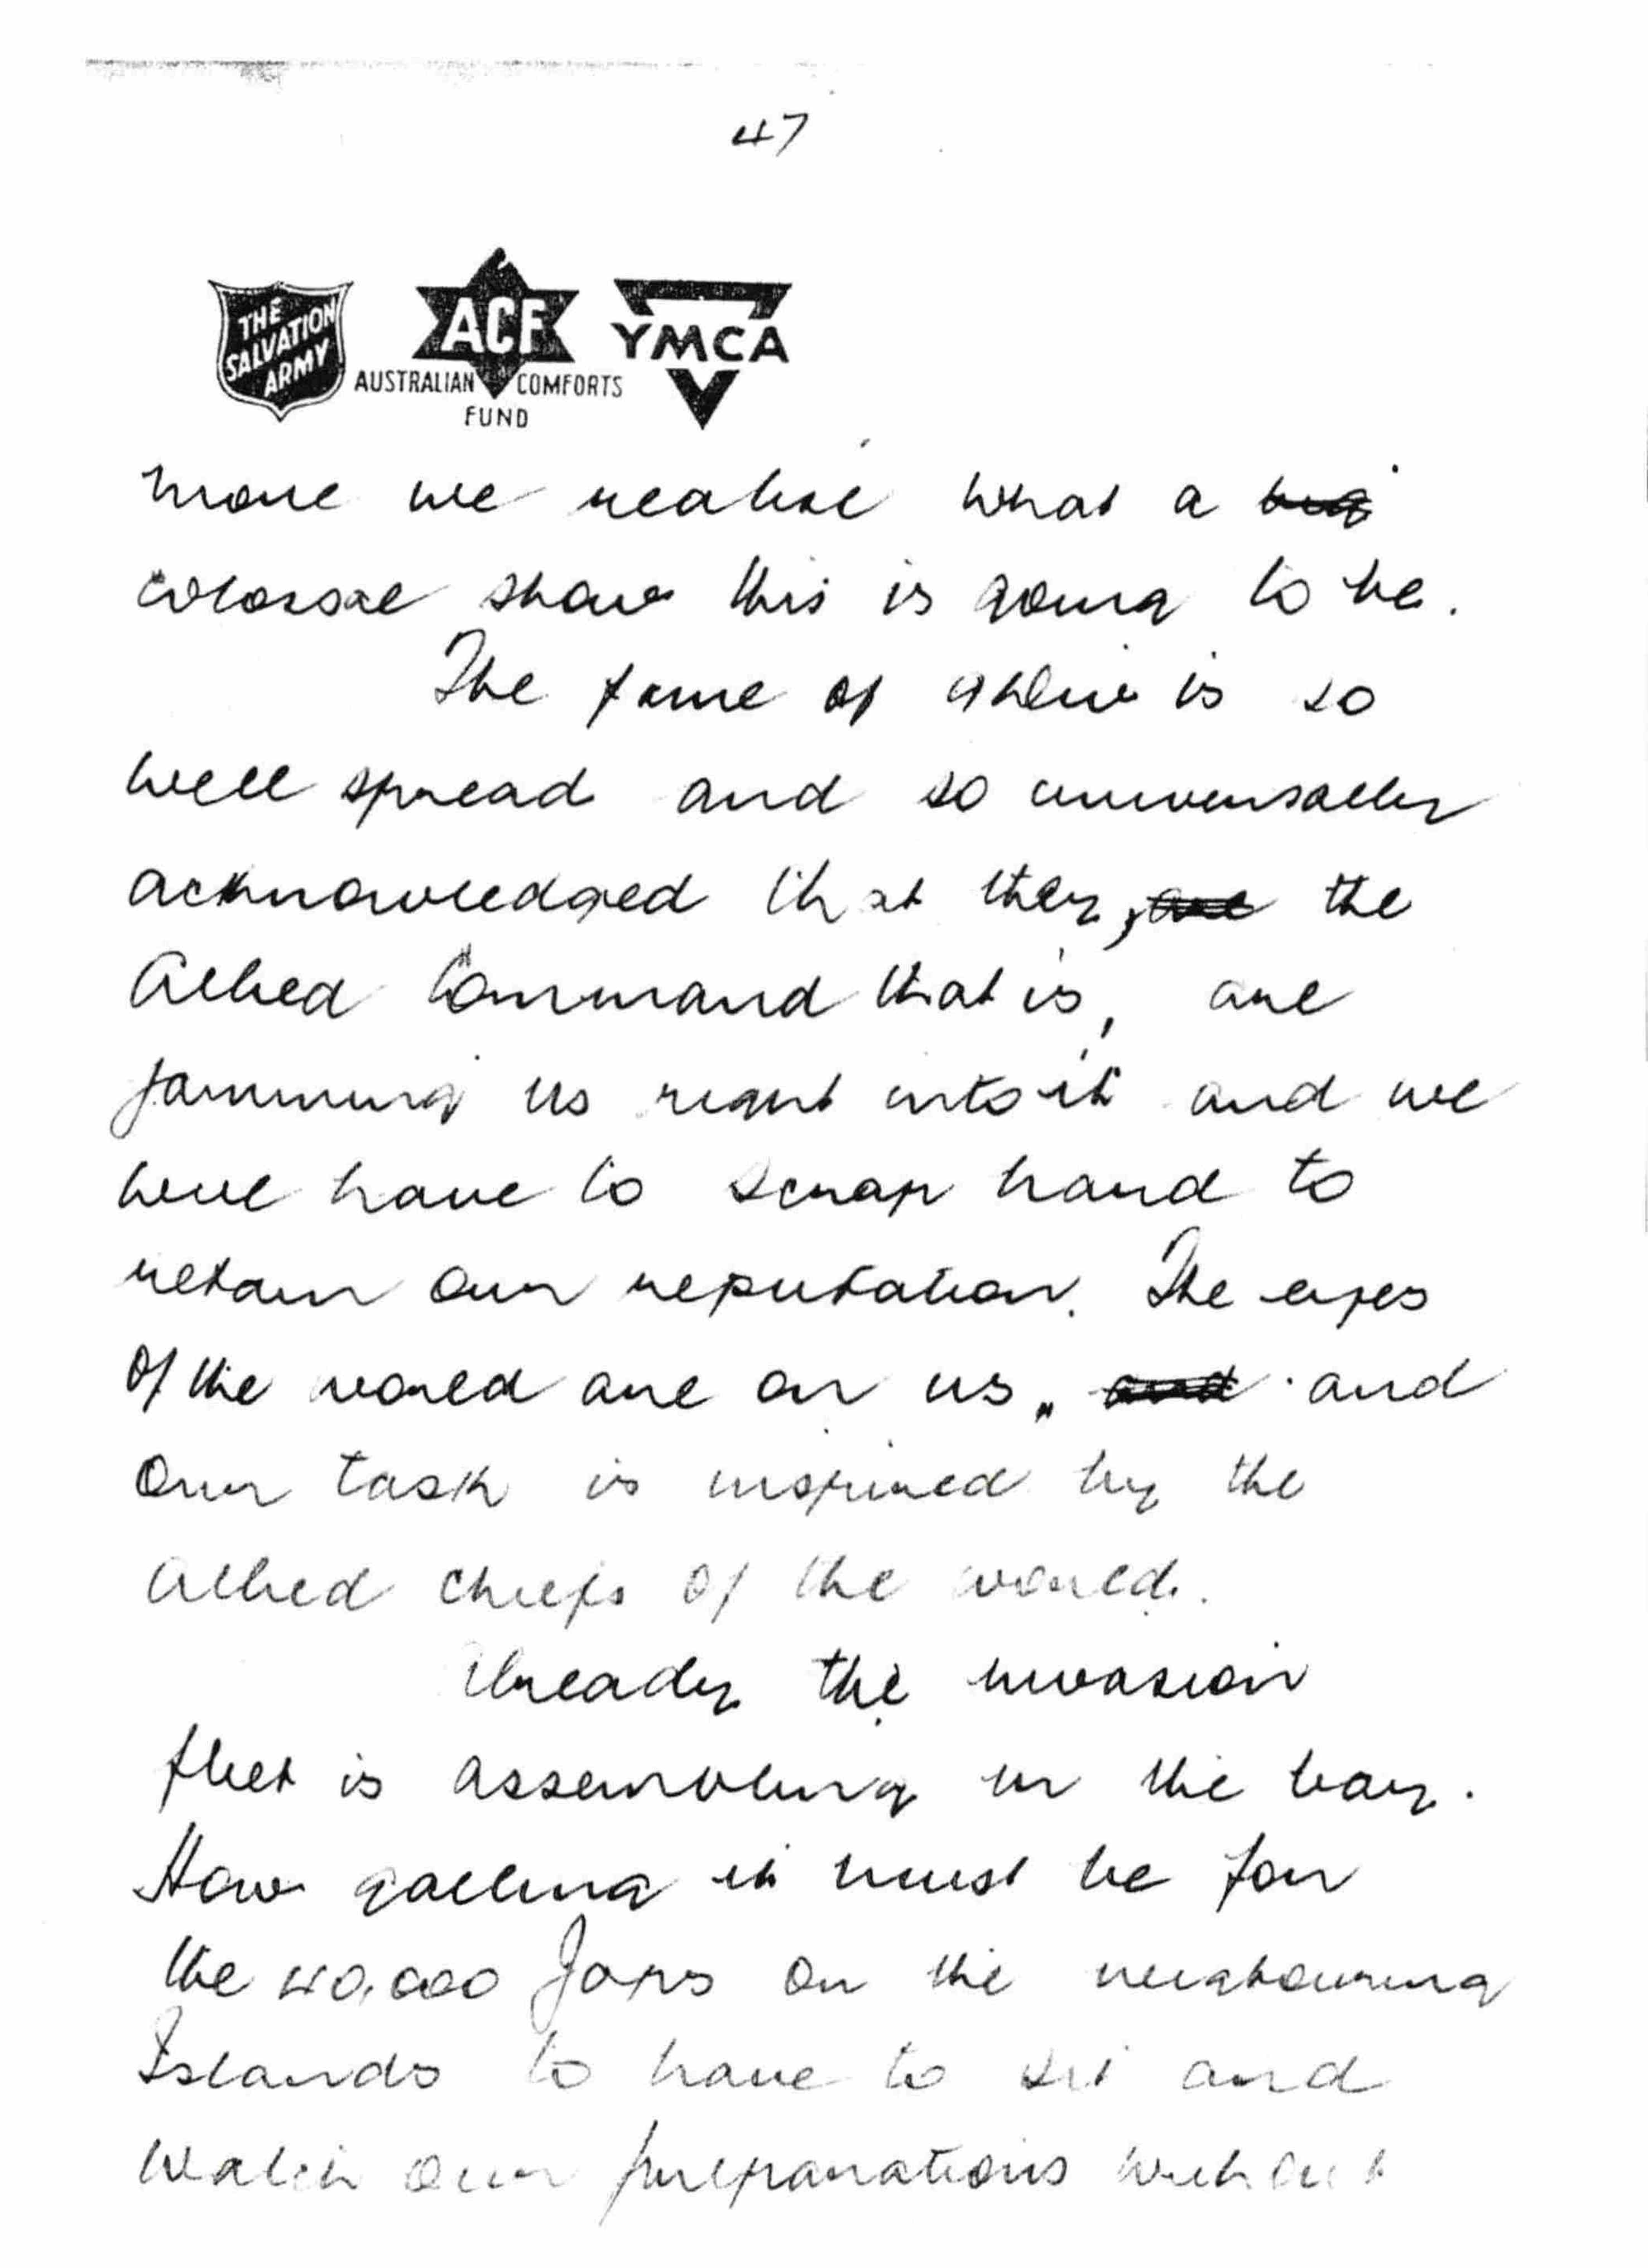 47
THE SALVATION ARMY
ACF
AUSTRALIAN COMFORTS
FUND
YMCA
more we realise what a big
colossal show this is going to be.
The fame of 9 Div is so
well spread and so universally
acknowledged that they, are the
Allied Command that is, are
jamming us right into it and we
will have to scrap hard to
retain our reputation. The eyes
of the world are on us, and and
our task is inspired by the
Allied chiefs of the world.
Already the invasion
fleet is assembling in the bay.
How galling it must be for
the 40,000 Japs on the neighbouring
Islands to have to sit and
watch our preparations without